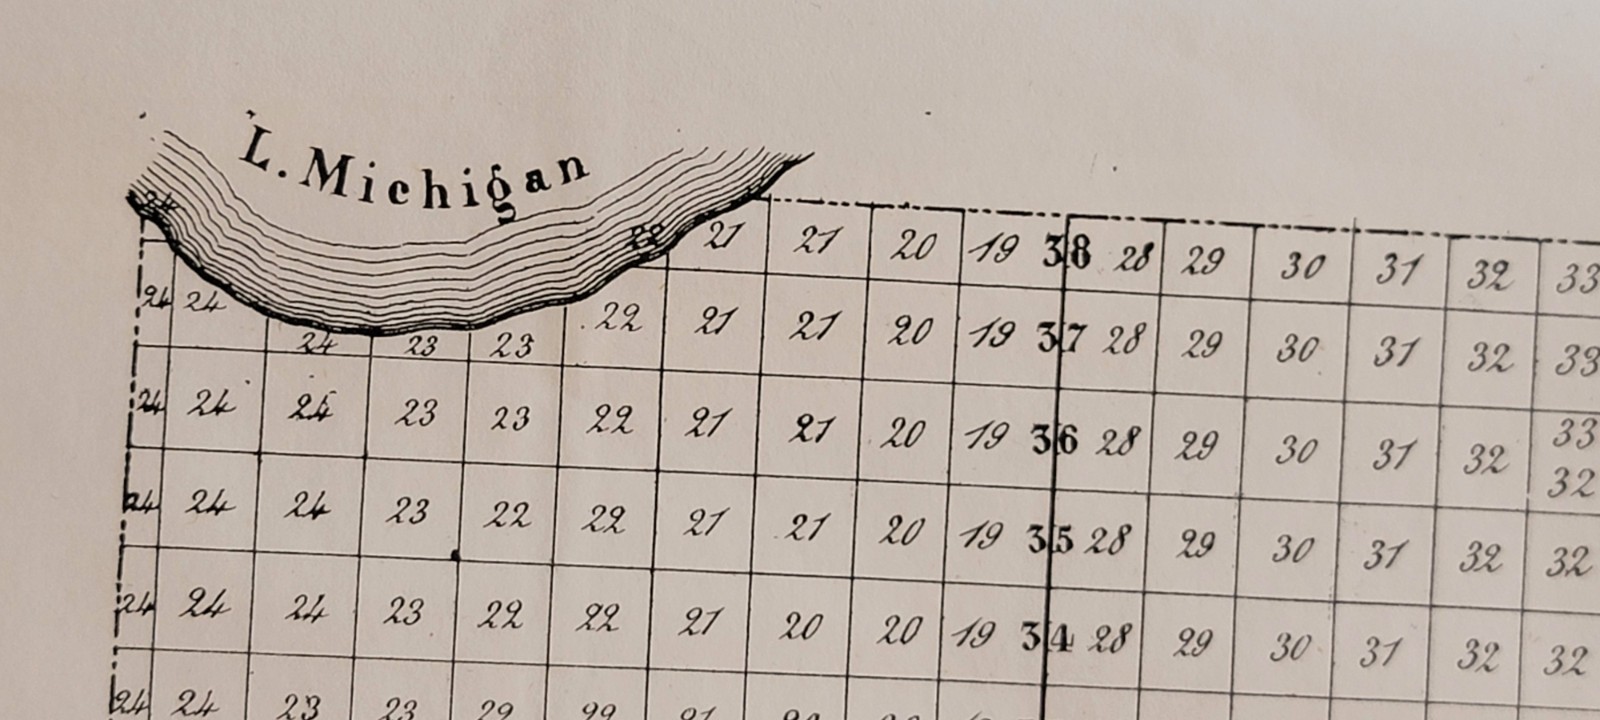 L. Michigan
24 22 21 21 20 19 38 28 29 30 31 32 33
24 24 24 23 23 22 21 21 20 19 37 28 29 30 31 32 33
24 24 24 23 23 22 21 21 20 19 36 28 29 30 31 32 33
32
24 24 24 23 22 22 21 21 20 19 35 28 29 30 31 32 32
24 24 24 23 22 22 21 20 20 19 34 28 29 30 31 32 32
24 24 23 23 22 22 21 20